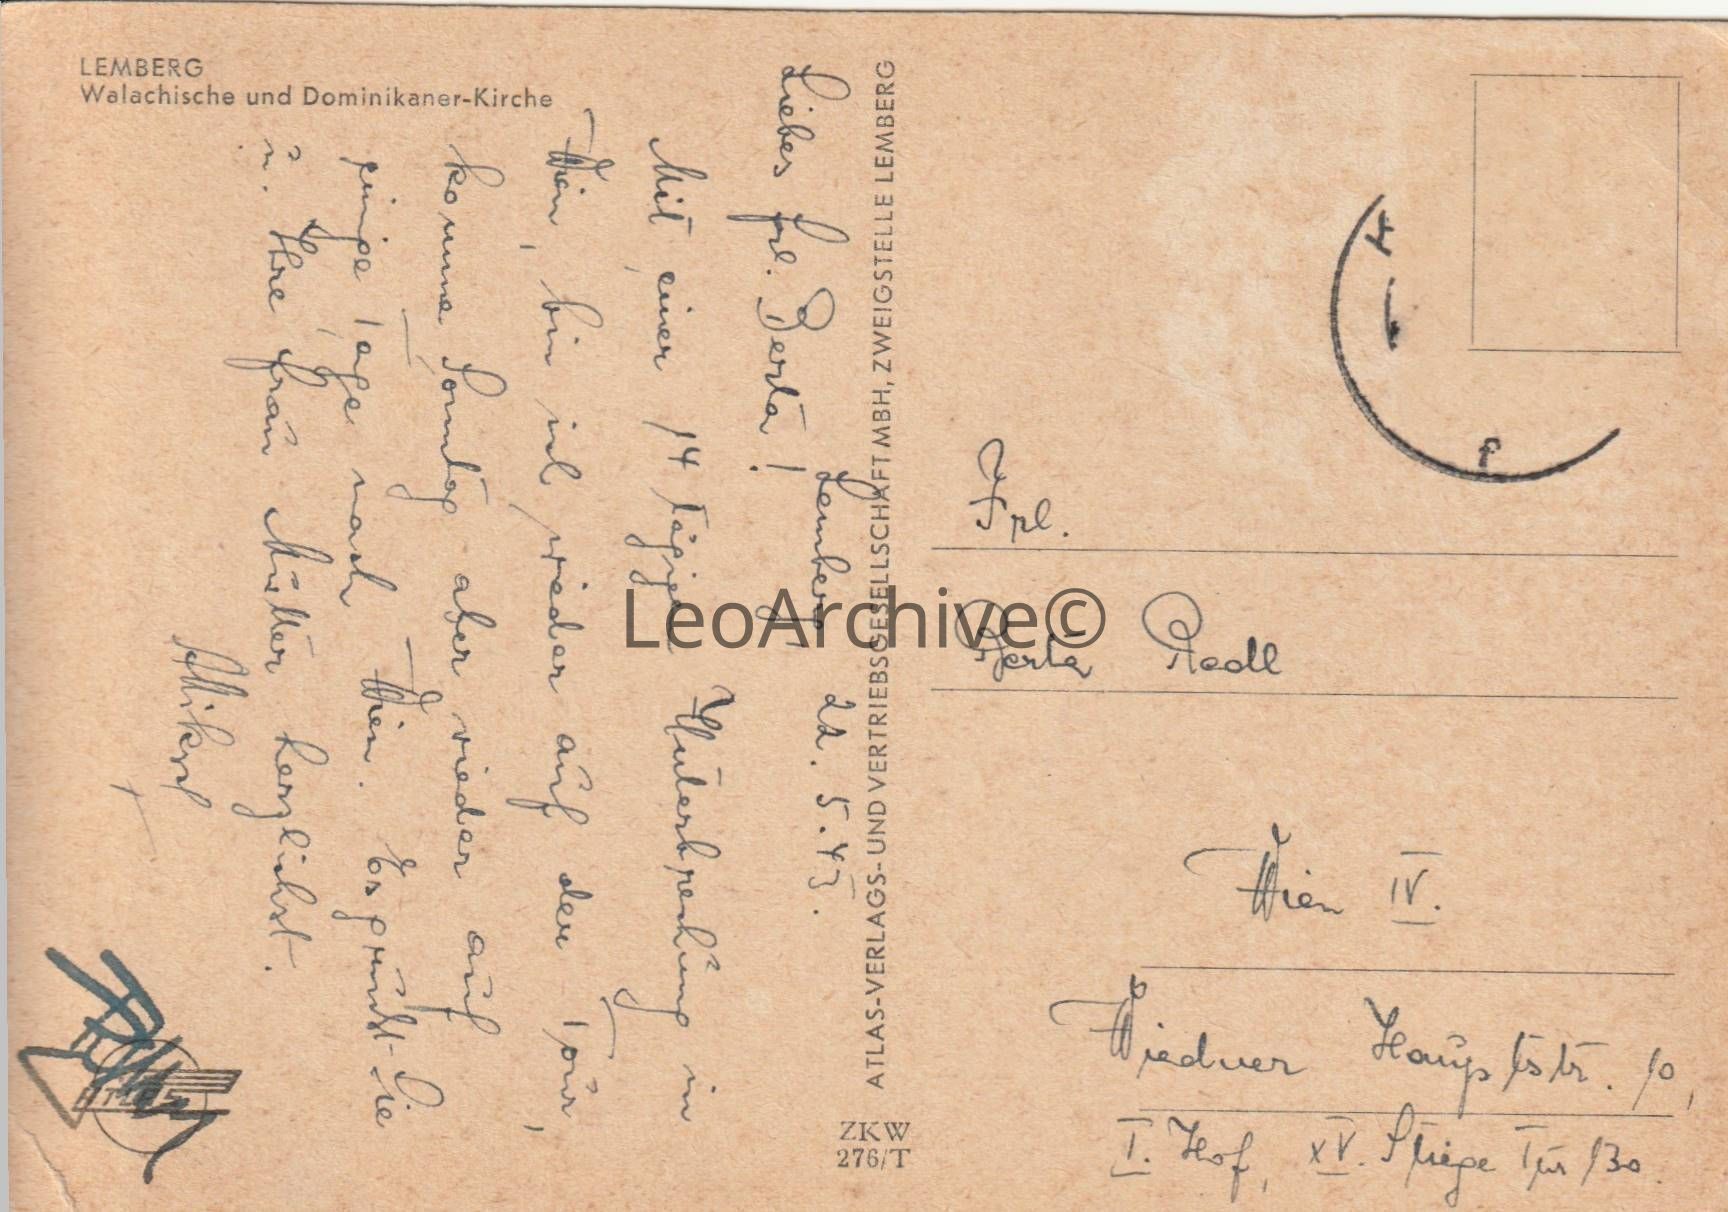 LEMBERG
Walachische und Dominikaner-Kirche
Lemberg, 22. 5. 43.
Liebes Frl. Berta!
Mit einer 14 tägigen Unterbrechung in
Wien, bin ich wieder auf der Tour,
komme Sonntag aber wieder auf
einige Tage nach Wien. Es grüsst Sie
u. Ihre Frau Mutter herzlichst.
ATLAS-VERLAGS- UND VERTRIEBSGESELLSCHAFT MBH, ZWEIGSTELLE LEMBERG
ZKW
276/T
Frl.
Berta Redl
Wien IV.
Wiedner Hauptstr. 10,
I. Hof, XV. Stiege Tür 130.
ATLAS
LeoArchive©